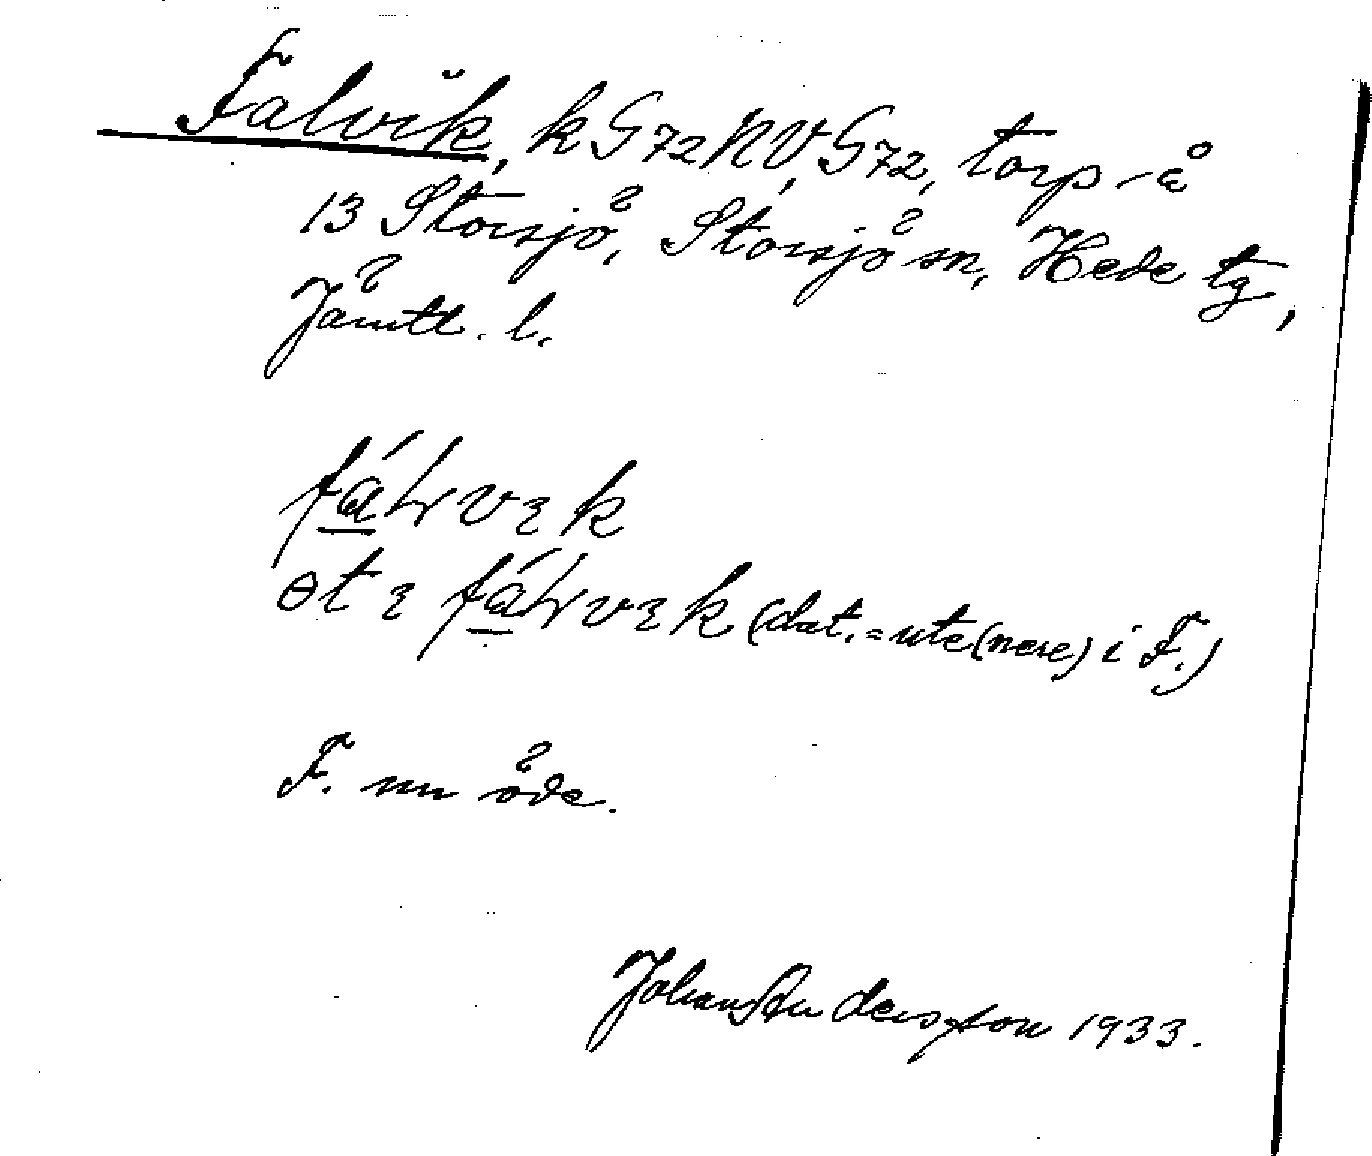 Falvik, k G72NV, G72, torp å
13 Storsjö, Storsjö sn, Hede tg,
Jämtl. l.
(dat. = ute(nere) i F.)
F. nu öde.
Johan Andersson 1933.